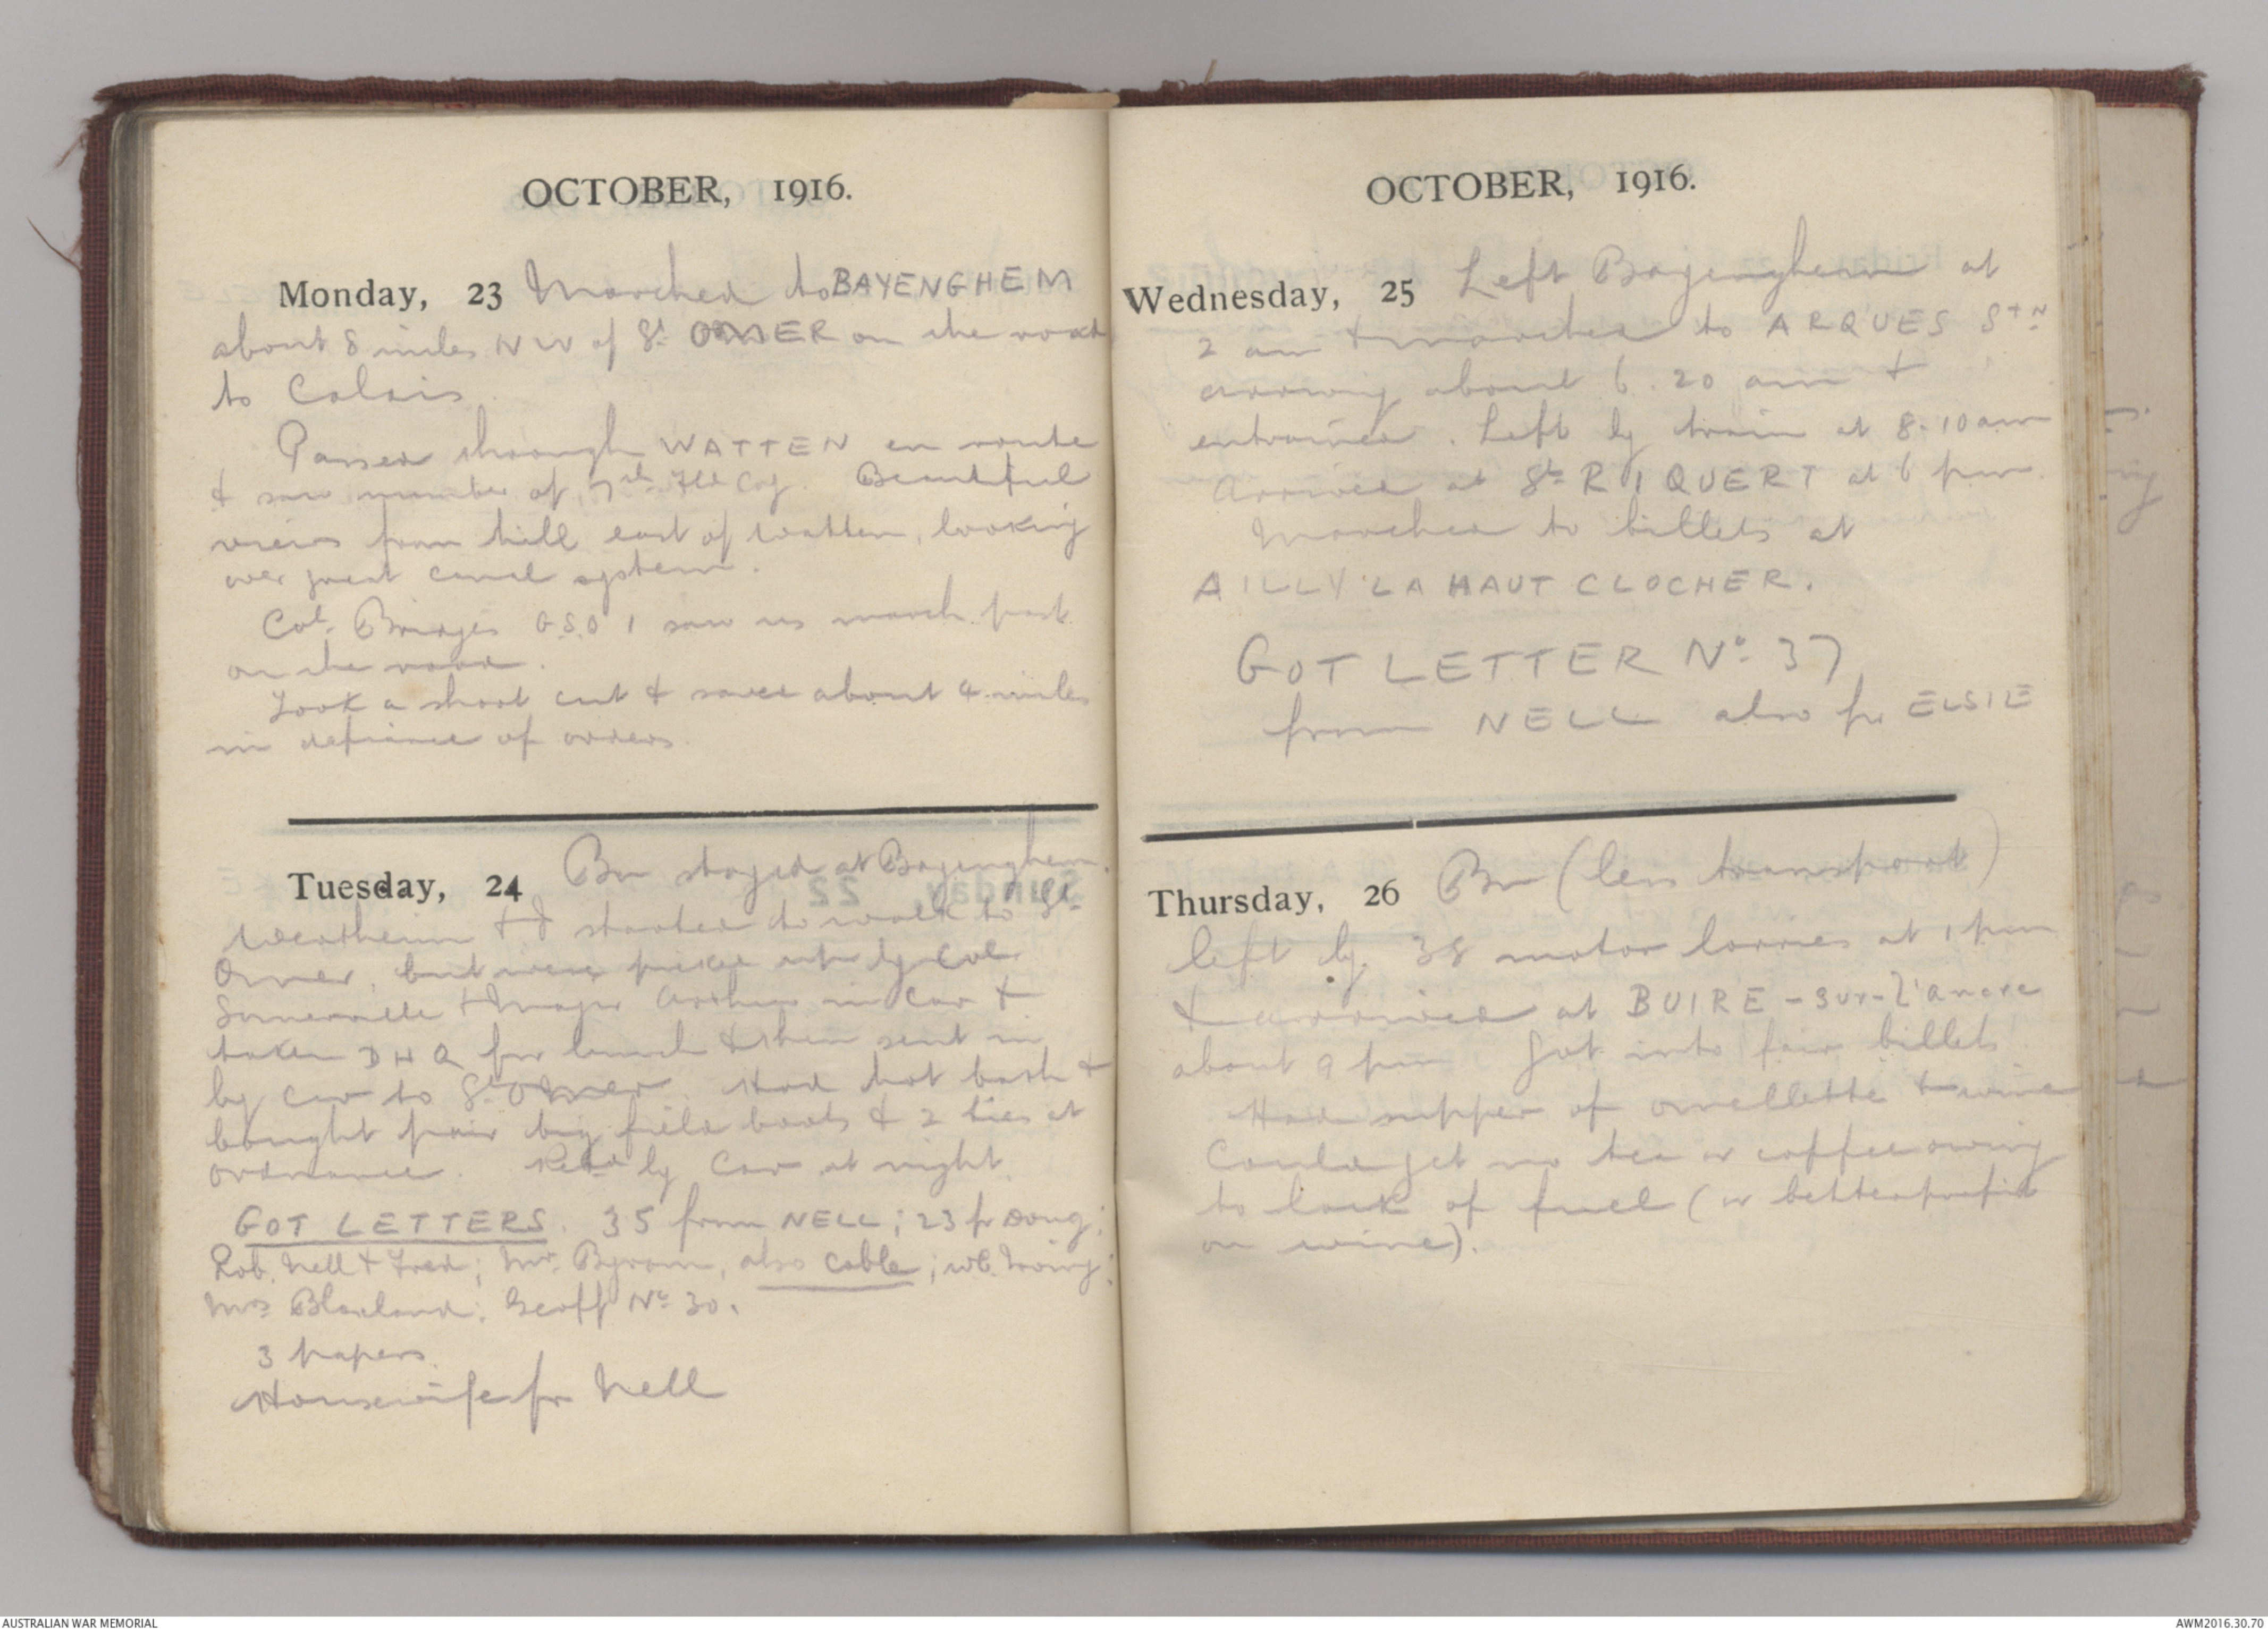 OCTOBER, 1916.
Monday, 23 Marched to BAYENGHEM
about 8 miles NW of St OMER on the road
to Calais.
Passed through WATTEN en route
& saw number of 7th Fld Coy. Beautiful
views from hill east of Watten, looking
over great canal system.
Col. Bridges GSO 1 saw us march past
on the road.
Took a short cut & saved about 4 miles
in defiance of orders.
Tuesday, 24 Bn stayed at Bayenghem.
Wertheim & I started to walk to St.
Omer, but were picked up by Col
Somerville & Major Arthur in Car &
taken DHQ for lunch & then sent in
by car to St Omer. Had hot bath &
bought pair big field boots & 2 ties at
ordnance. Retd by Car at night.
GOT LETTERS. 35 from NELL; 23 fr Doug;
Rob. Nell & Fred; Mr. Byram, also cable; W.E. Irving;
Mrs Blaxland; Geoff No 30.
3 papers.
Housewife fr Nell
OCTOBER, 1916.
Wednesday, 25 Left Bayenghem at
2 am & marched to ARQUES STN
arriving about 6.20 am &
entrained. Left by train at 8.10 am
Arrived at St RIQUERT at 6 pm.
Marched to billets at
AILLY LA HAUT CLOCHER.
GOT LETTER No. 37
from NELL also fr ELSIE
Thursday, 26 Bn (less transport)
left by 38 motor lorries at 1 pm
& arrived at BUIRE-sur-l'ancre
about 9 pm Got into fair billets
Had supper of omellette & wine
Could get no tea or coffee owing
to lack of fuel (or better profit
on wine).
AUSTRALIAN WAR MEMORIAL
AWM2016.30.70